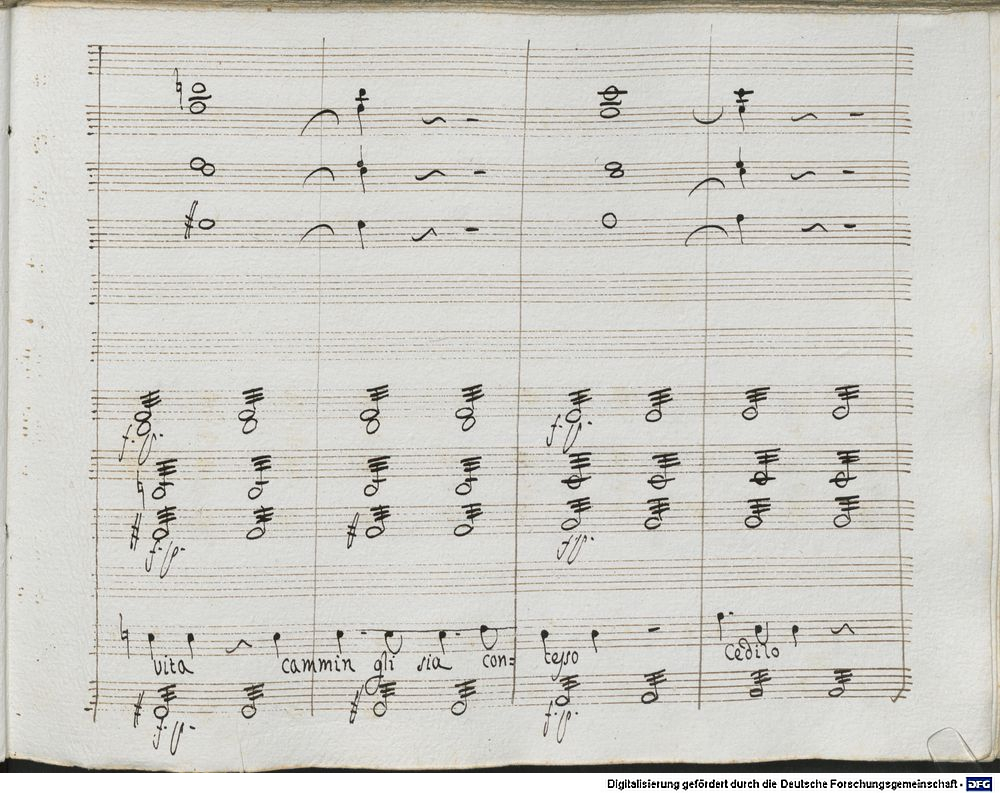 f. p.
f. p.
f. p.
f p.
vita cammin gli sia con= tesso Cedilo
f. p.
f. p.
Digitalisierung gefördert durch die Deutsche Forschungsgemeinschaft - DFG